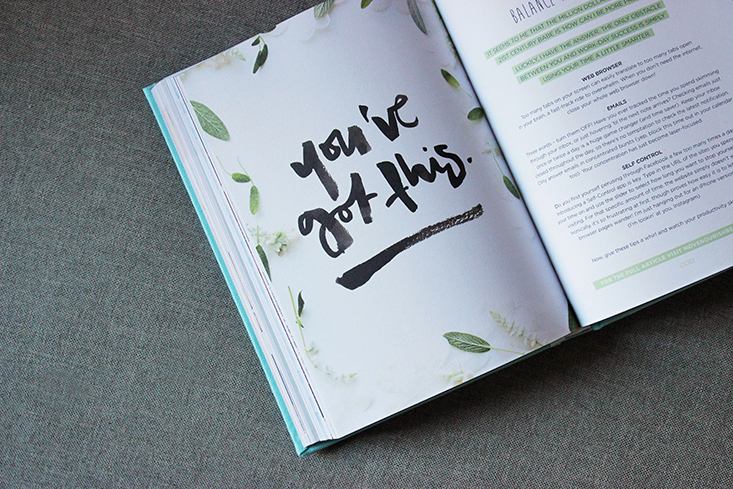 you've
got this.
BALANCE
IT SEEMS TO ME THAT THE MILLION DOLLAR
21ST CENTURY BABE IS: HOW CAN I BE MORE
LUCKILY I HAVE THE ANSWER. THE ONLY OBSTACLE
BETWEEN YOU AND WORK-DAY SUCCESS IS SIMPLY
USING YOUR TIME A LITTLE SMARTER.
WEB BROWSER
Too many tabs on your screen can easily translate to too many tabs open
in your brain, a fast-track ride to overwhelm. When you don't need the internet,
close your whole web browser down!
EMAILS
Three words - turn them OFF! Have you ever tracked the time you spend skimming
through your inbox, or just hovering 'til the next note arrives? Checking emails just
once or twice a day is a huge game changer (and time saver). Keep your inbox
closed throughout the day, so there's no temptation to check the latest notification
and only answer emails in concentrated bursts (yep, block this time out in your calendar
too). Your concentration has just become laser-focused.
SELF CONTROL
Do you find yourself perusing through Facebook a few too many times a day?
Introducing a Self-Control app
For that specific amount of time, the website simply doesn't
it's so frustrating at first, though proves how easy it is to let
browser pages wander! I'm just hanging out for an iPhone version
(I'm lookin' at you, Instagram).
Now, give these tips a whirl and watch your productivity
FOR THE FULL ARTICLE VISIT